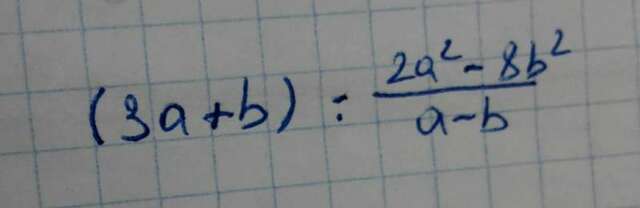 (3a+b) : \frac{2a^2-8b^2}{a-b}